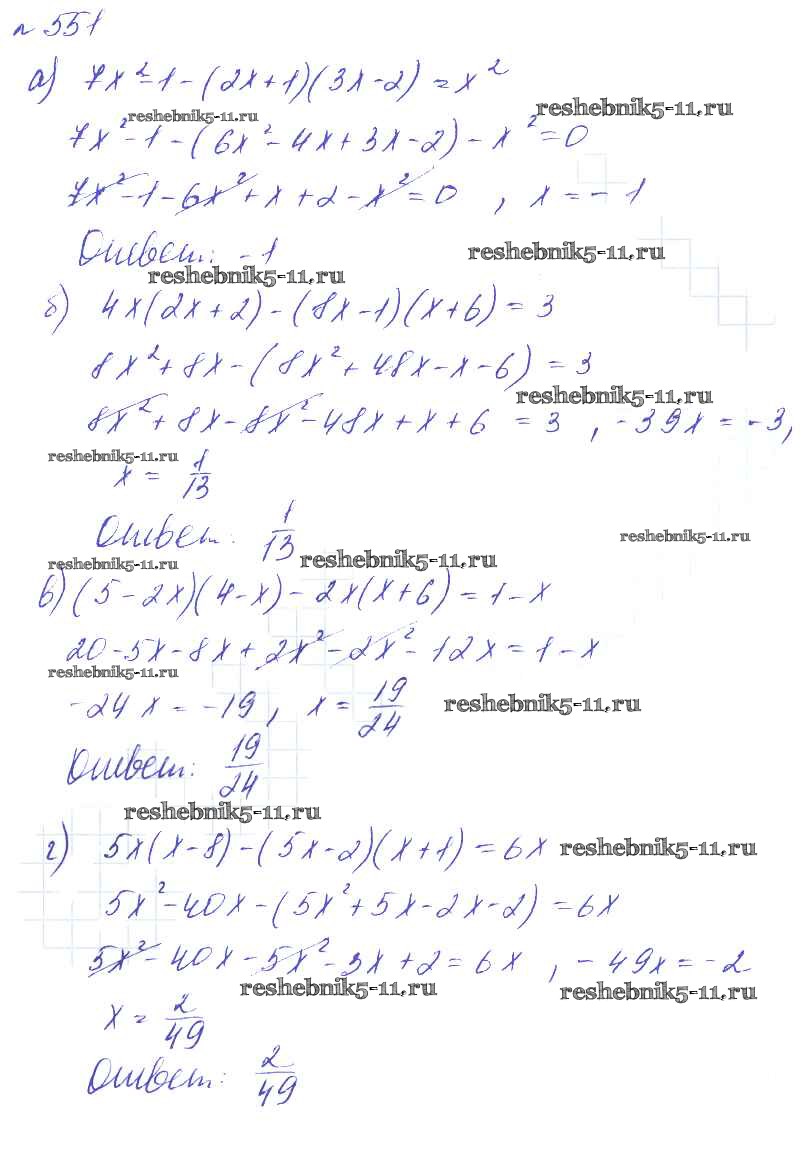 № 551
а) 7x² - 1 - (2x + 1)(3x - 2) = x²
reshebnik5-11.ru reshebnik5-11.ru
7x² - 1 - (6x² - 4x + 3x - 2) - x² = 0
7x² - 1 - 6x² + x + 2 - x² = 0 , x = - 1
Ответ: -1 reshebnik5-11.ru
reshebnik5-11.ru
б) 4x(2x + 2) - (8x - 1)(x + 6) = 3
8x² + 8x - (8x² + 48x - x - 6) = 3
reshebnik5-11.ru
8x² + 8x - 8x² - 48x + x + 6 = 3 , - 39x = - 3,
reshebnik5-11.ru
x = 1/13
Ответ: 1/13 reshebnik5-11.ru
reshebnik5-11.ru reshebnik5-11.ru
в) (5 - 2x)(4 - x) - 2x(x + 6) = 1 - x
20 - 5x - 8x + 2x² - 2x² - 12x = 1 - x
reshebnik5-11.ru
-24x = -19, x = 19/24 reshebnik5-11.ru
Ответ: 19/24
reshebnik5-11.ru
г) 5x(x - 8) - (5x - 2)(x + 1) = 6x reshebnik5-11.ru
5x² - 40x - (5x² + 5x - 2x - 2) = 6x
5x² - 40x - 5x² - 3x + 2 = 6x , - 49x = - 2
reshebnik5-11.ru reshebnik5-11.ru
x = 2/49
Ответ: 2/49